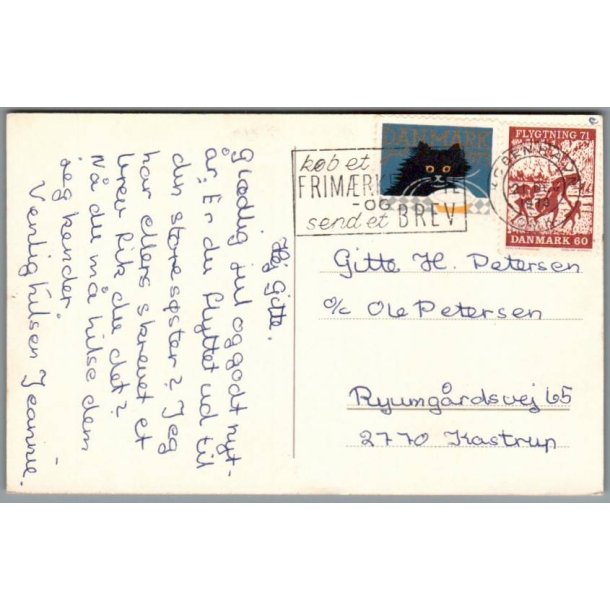 Hej Gitte.
Glædlig jul og godt nyt-
år, Er du flyttet ud til
din store søster? Jeg
har ellers skrevet et
brev fik du det?
Nå du må hilse dem
jeg kender.
Venlig hilsen Jeannie.
DANMARK
FLYGTNING 71
DANMARK 60
køb et
FRIMÆRKE
-OG
send et BREV
Gitte H. Petersen
c/o Ole Petersen
Ryumgårdsvej 65
2770 Kastrup